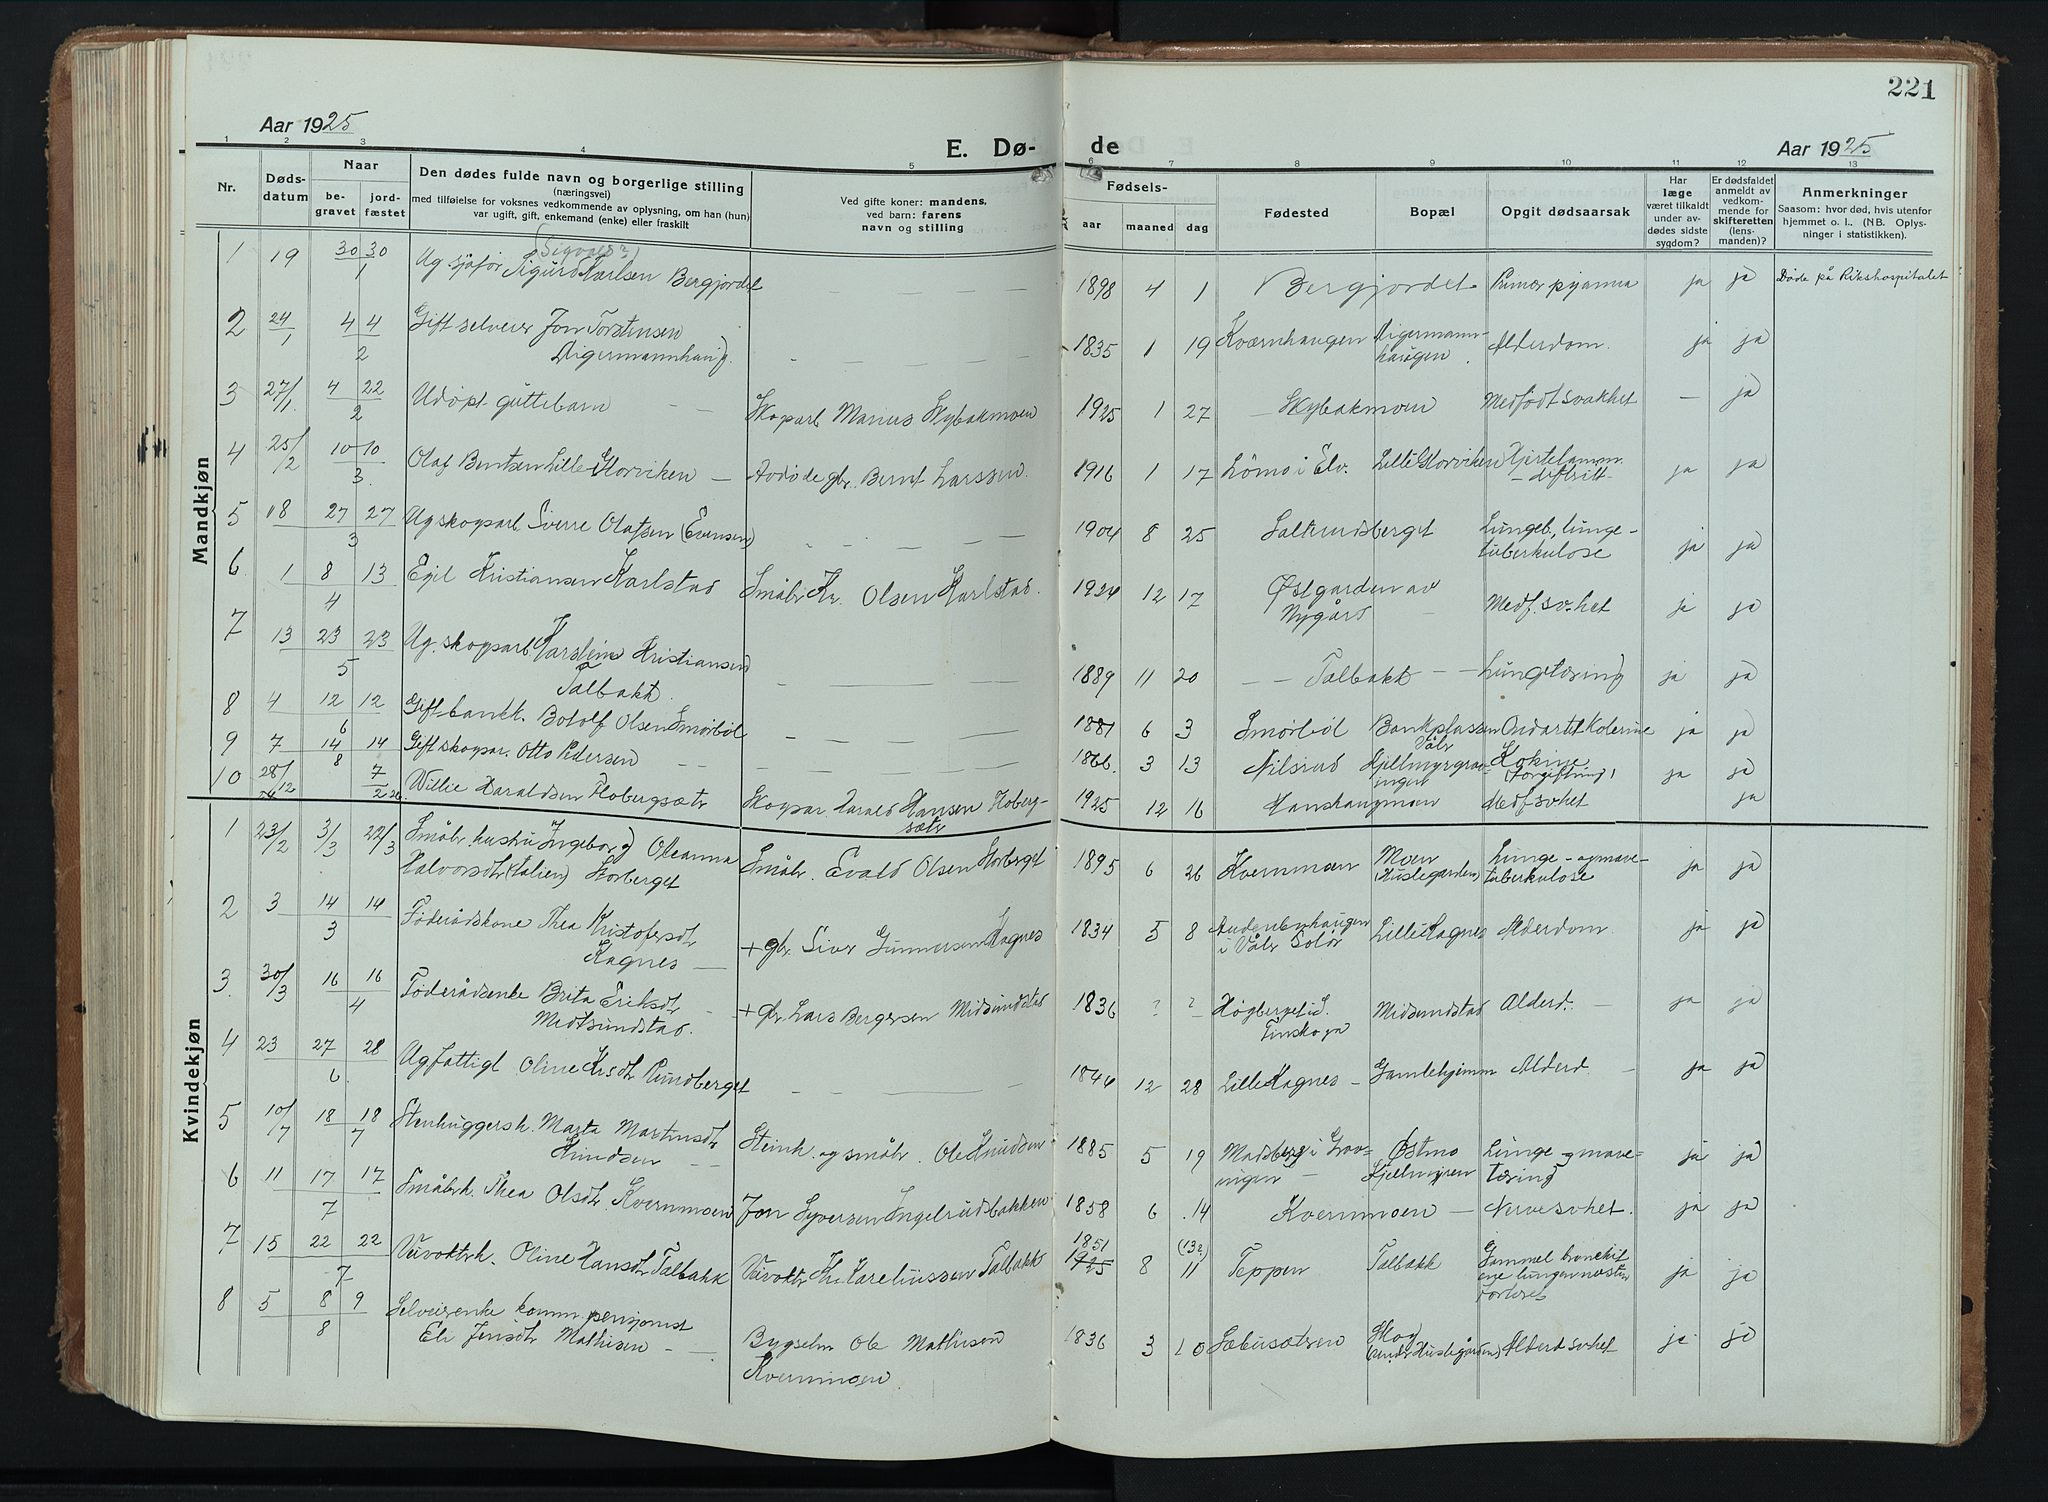 221
Aar 1925
E. Dø-
de
Aar 1925
1 2 3 4 5 6 7 8 9 10 11 12 13
Nr.
Døds-
datum
Naar
be-
gravet
jord-
fæstet
Den dødes fulde navn og borgerlige stilling
(næringsvei)
med tilføielse for voksnes vedkommende av oplysning, om han (hun)
var ugift, gift, enkemand (enke) eller fraskilt
Ved gifte koner: mandens,
ved barn: farens
navn og stilling
Fødsels-
aar
maaned
dag
Fødested
Bopæl
Opgit dødsaarsak
Har
læge
været tilkaldt
under av-
dødes sidste
sygdom?
Er dødsfaldet
anmeldt av
vedkom-
mende for
skifteretten
(lens-
manden)?
Anmerkninger
Saasom: hvor død, hvis utenfor
hjemmet o. l.. (NB. Oplys-
ninger i statistikken).
Mandkjøn
1 19/1 30 30 Ug. sjafør Sigurd Karlsen Bergjordet — 1898 4 1 Bergjordet ja ja Døde på Rikshospitalet
2 24/1 4 4/2 Gift selveier Jon Torstensen
Digermannhaug. — 1835 1 19 Kværnhaugen Digermann-
haugen Alderdom. ja ja
3 27/1 4 22/2 Udøpt guttebarn — Skogarb Marius Skybakmoen 1925 1 27 — Skybakmoen Medfødt svakhet — ja
4 25/2 10 10/3 Olaf Berntsen Lille Storviken — Avdøde gbr. Bernt Larssen. 1916 1 17 Lømo i Elv. Lille Storviken Hjertelamm.
— difterit — ja ja
5 18 27 27/3 Ug skogarb Sverre Olafsen (Evensen) — 1904 8 25 Saltrudsberget Lungeb, lunge-
tuberkulose ja ja
6 1 8 13/4 Egil Kristiansen Karlstad Småbr Kr. Olsen Karlstad. 1924 12 17 Østgarden av
Nygård Medf. sv.het ja ja
7 13 23 23/5 Ug. skogarb. Karstein Kristiansen
Talbakk. — 1889 11 20 — Talbakk — Lungetæring ja ja
8 4 12 12/6 Gift bankk. Botolf Olsen Smørbøl — 1881 6 3 Smørbøl Bankplassen
Våler Ondartet Kolerine ja ja
9 7 14 14/8 Gift skogar. Otto Pedersen — 1866. 3 13 Nilsrud Kjellmyrgrav-
ingen (Forgiftning) ja ja
10 28/12 7/2 26 Willie Haraldsen Hobergsætr Skogar. Harald Hansen Hoberg-
sætr 1925 12 16 Hanshaugmoen Medf svhet ja
Kvindekjøn
1 23/2 3/3 22/3 Småbr. hustru Ingeborg Oleanna
Halvorsdtr (Italien) Storberget Småbr. Evald Olsen Storberget 1895 6 26 Kvernmoen Moen
(Huslegarden) Lunge- og mave-
tuberkulose ja ja
2 3 14 14/3 Føderådskone Thea Kristofersdtr
Hagnes — + gbr. Siver Gunnersen Hagnes 1834 5 8
i Våler Solør Lille Hagnes Alderdom. ja ja
3. 30/3 16 16/4 Føderådsenke Brita Eriksdtr
Midtsundstad. — + gbr. Lars Bergersen Midsundstad 1836 ? ? Høgberget i S.
Finskoga Midsundstad Alderd. — ja ja
4 23 27 28/6 Ug fattigl Oline Krsdtr Rundberget — 1844 12 28 Lille Hagnes — Gamlehjemm Alderd. — ja ja
5 10/7 18 18/7 Stenhuggersk. Marta Martinsdtr
Knudsen — Steinh. og småbr. Ole Knudsen 1885 5 19 Madsberg i Grav-
ingen — Østmo
Kjellmyren Lunge og mave-
tæring ja ja
6 11 17 17/7 Småbrk. Thea Olsdtr. Kvernmoen Jon Syversen Ingelrudsbakken 1858 6 14 Kvernmoen — Nervesvhet. ja ja
7 15 22 22/7 Veivoktrk. Oline Hansdtr Talbakk Veivoktr Kr. Karelíussen Talbakk 1851
1925 8 (13?)
11 Teppen Talbakk Gammel bronchit
ja ja
8 5 8 9/8 Selveierenke komm. pensjonist
Eli Jensdtr Mathisen — Bygselm Ole Mathisen
Kvernmoen. 1836 3 10 Sæbusætren Skog
(under Huslegården) Alderd svhet ja ja